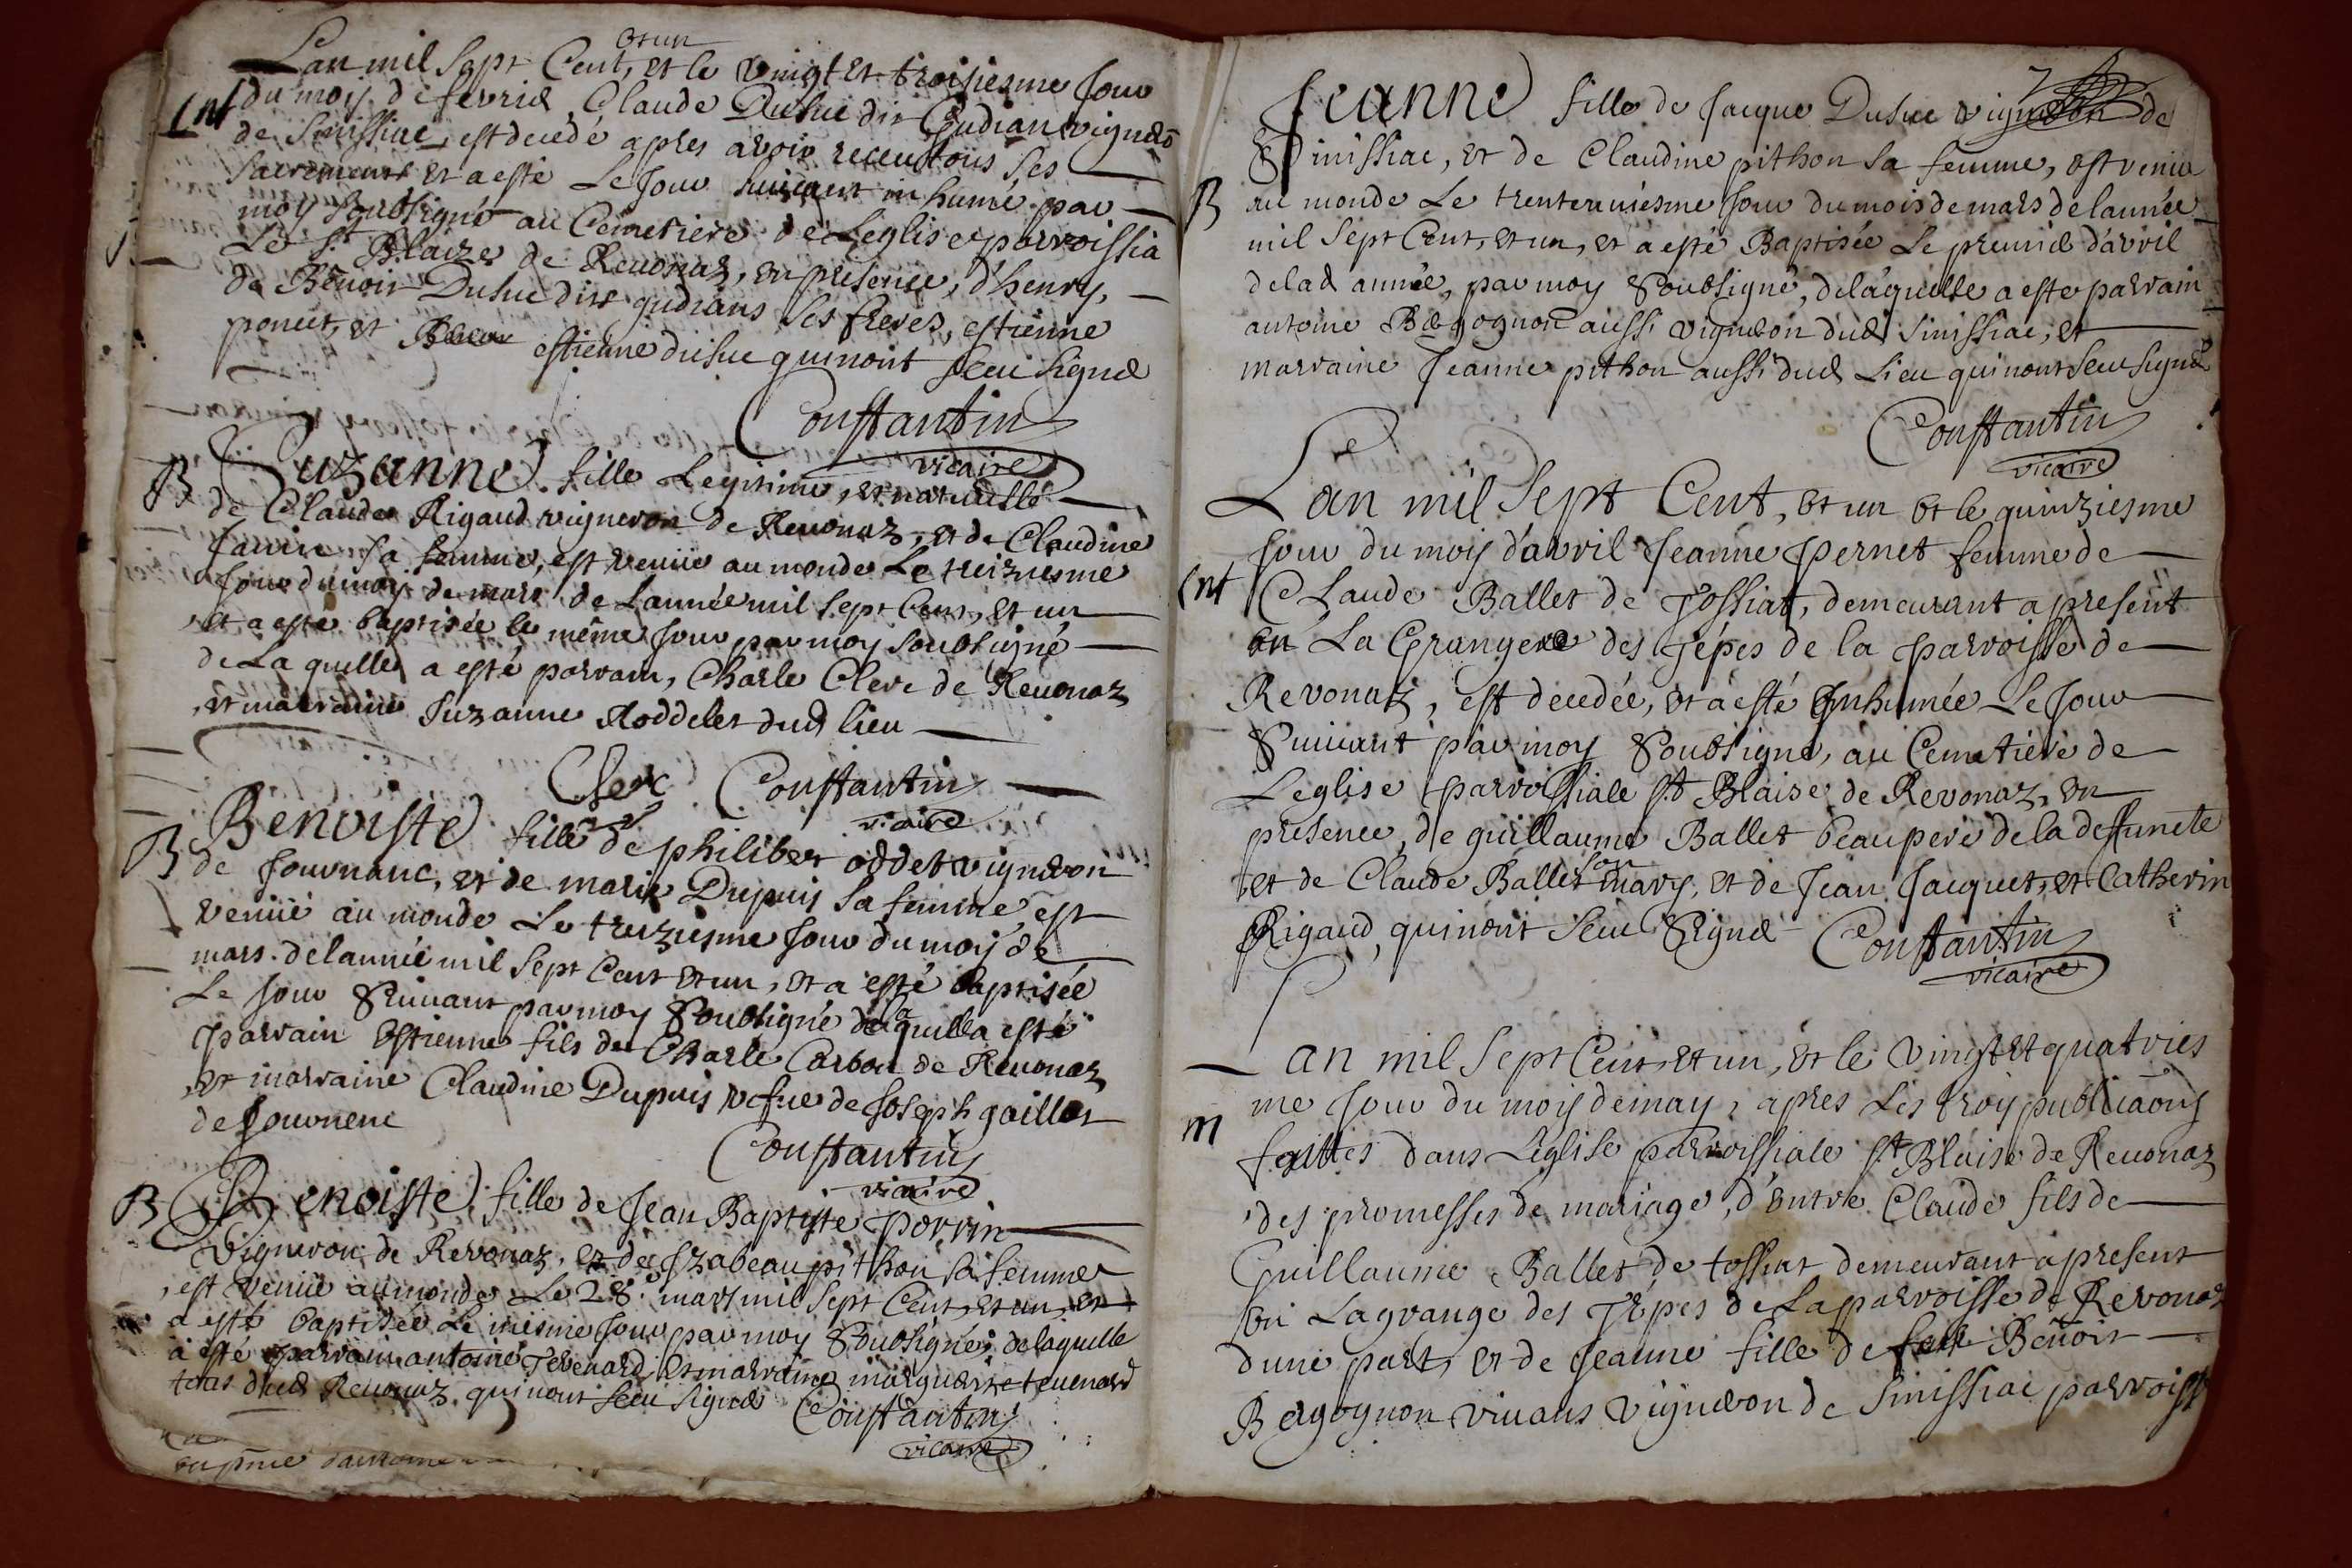 et un
Lan mil Sept Cent, et le vingt et troisiesme Jour
Int du moy de fevrier Claude Dusuc dit Gudian vignerō
de Sinissiac, est decedé apres avoir receu tous ses
Sacrements et a esté Le Jour suivant inhumé par
moy Soubsigné au Cemetiere de Leglise parroissia
Le St Blaize de Revonaz, en presence, d'henry,
de Benoit Dusuc dits gudians ses freres, estienne
poncet, et estienne dusuc qui nont Sceu Signer
Constantin
vicaire
B Suzanne fille Legitime, et naturelle
de Claude Rigaud vigneron de Revonaz, et de Claudine
Janin sa femme, est venue au monde Le treiziesme
Jour du moy de mars de Lannée mil Sept Cent, et un
et a esté baptisée le même Jour par moy Soubsigné
de La quelle a esté parrain, Charle Clere de Revonaz
et marraine Suzanne Roddelet dud lieu
Clerc Constantin
vicaire
B Benoiste fille de philibert oddet vigneron
de Journanc, et de marie Dupuis Sa femme est
venue au monde Le treiziesme Jour du moy de
mars de lannée mil Sept Cent et un, et a esté baptisée
Le Jour Suivant par moy Soubsigné de laquelle a esté
parrain Estienne fils de Charle Carbon de Revonaz
et marraine Claudine Dupuis vefue de Joseph gaillet
de Journenc
Constantin
vicaire
B Benoiste, fille de Jean Baptiste porrin
Vigneron de Revonaz, et de Izabeau pithon sa femme
est venue au monde Le 28e mars mil Sept Cent, et un, et
a esté baptisée Le mesme Jour par moy Soubsigné, de laquelle
a esté parrain antoine Tevenard, et marraine marguerite tevenard
tous dud Revonaz qui nont sceu signer Constantin
vicaire
7
Jeanne fille de Jacque Dusuc vigneron de
Sinissiac, et de Claudine pithon sa femme, est venue
B au monde Le trenteuniesme Jour du mois de mars de lannée
mil Sept Cent, et un, et a esté Baptisée Le premier d'avril
de lad année, par moy Soubsigné, de laquelle a esté parrain
antoine Bergognon aussi vigneron dud Sinissiac, et
marraine Jeanne pithon aussi dud Lieu qui nont Sceu Signer
Constantin
vicaire
Lan mil Sept Cent, et un et le quinziesme
Jour du moy d'avril Jeanne Pernet femme de
Int Claude Ballet de Tossiat, demeurant a present
en La Grangere des Tépes de la parroisse de
Revonaz, est decedée, et a esté Inhumée Le Jour
Suivant par moy Soubsigné, au Cemetiere de
Leglise parroissiale St Blaise de Revonaz, en
presence, de guillaume Ballet beaupere de la deffuncte
et de Claude Ballet son mary, et de Jean Jacquet, et Catherin
Rigaud, qui nont Sceu Signer Constantin
vicaire
Lan mil Sept Cent, et un, et le vingt et quatries
me Jour du moy de may, apres Les troy publicaōns
m faittes dans Léglise parroissiale St Blaise de Revonaz
des promesses de mariage, d'entre Claude fils de
Guillaume Ballet de tossiat demeurant a present
en Lagrange des Tépes de La parroisse de Revonaz
dune part, et de Jeanne fille de feu Benoit
Bergognon vivans vigneron de Sinissiac parroisse